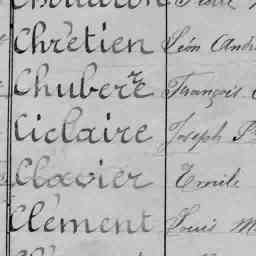 Chrétien Léon André
Chuberre François
Ciclaire Joseph P
Clavier Emile
Clément Louis M